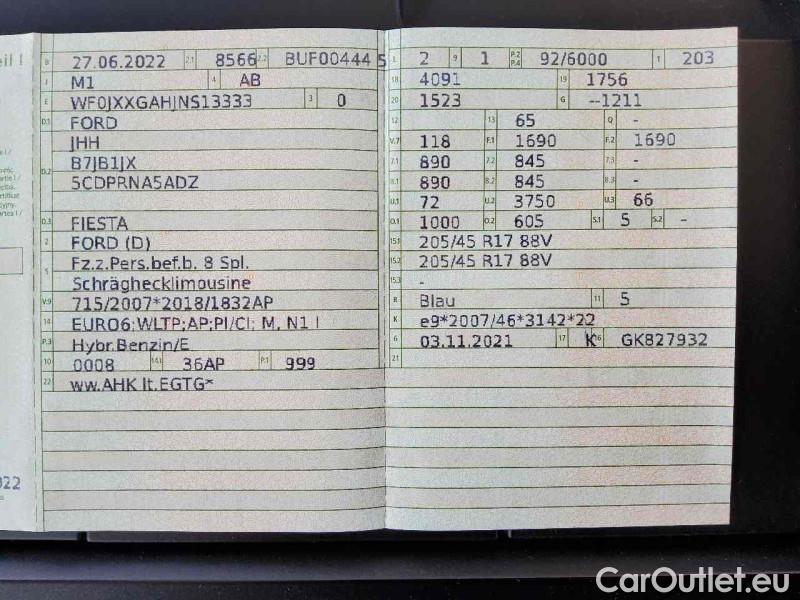 eil I
B 27.06.2022 2.1 8566 2.2 BUF00444 5
J M1 4 AB
E WF0JXXGAHJNS13333 3 0
D.1 FORD
JHH
D.2 B7JB1JX
5CDPRNA5ADZ
D.3 FIESTA
2 FORD (D)
5 Fz.z.Pers.bef.b. 8 Spl.
Schräghecklimousine
V.9 715/2007*2018/1832AP
14 EURO6;WLTP;AP;PI/CI; M, N1 I
P.3 Hybr.Benzin/E
10 0008 14.1 36AP P.1 999
22 ww.AHK lt.EGTG*
022
L 2 9 1 P.2 P.4 92/6000 T 203
18 4091 19 1756
20 1523 G --1211
12 13 65 Q -
V.7 118 F.1 1690 F.2 1690
7.1 890 7.2 845 7.3 -
8.1 890 8.2 845 8.3 -
U.1 72 U.2 3750 U.3 66
O.1 1000 O.2 605 S.1 5 S.2 -
15.1 205/45 R17 88V
15.2 205/45 R17 88V
15.3 -
R Blau 11 5
K e9*2007/46*3142*22
6 03.11.2021 17 K 16 GK827932
21
CarOutlet.eu